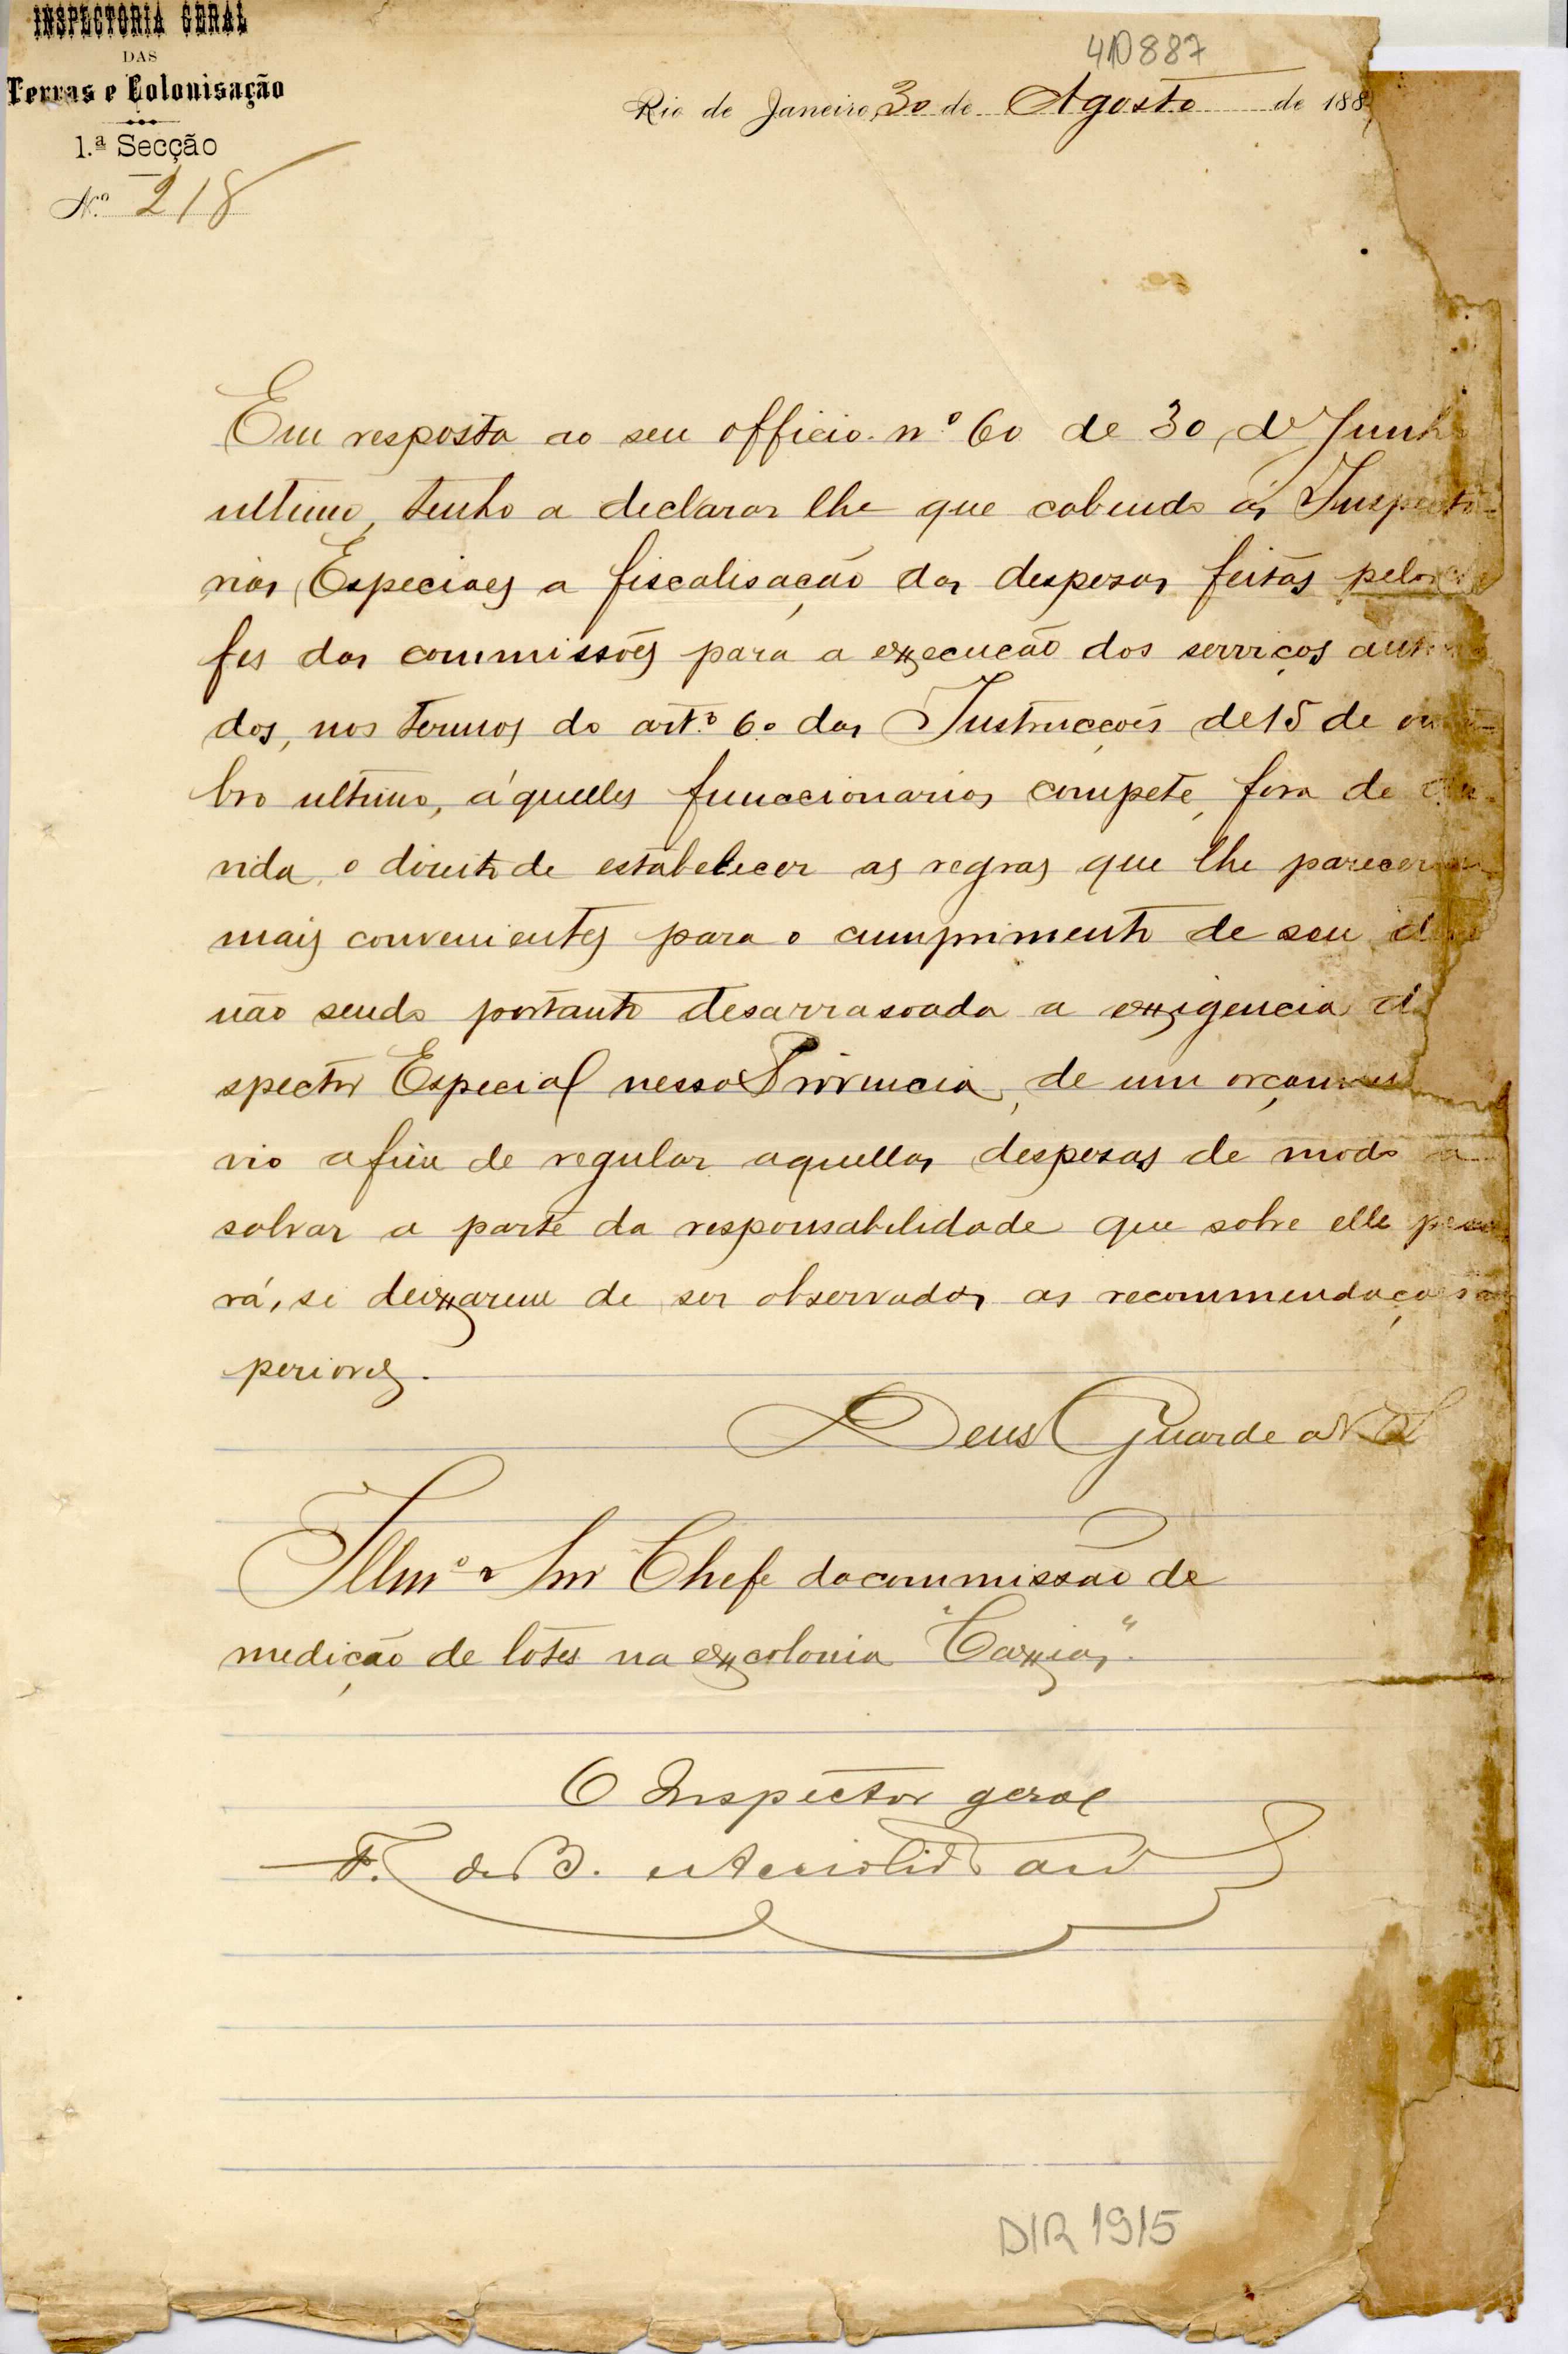 INSPECTORIA GERAL
DAS
Terras e Colonisação
1.ª Secção
N.º 218
410887
Rio de Janeiro, 30 de Agosto de 188
Em resposta ao seu officio nº 60 de 30 de Junho
ultimo, tenho a declarar lhe que cabendo ás Inspecto-
rias Especiaes a fiscalisação das despesas feitas pelos
fes das commissões para a execução dos serviços
dos, nos termos do artº 6º das Instrucções de 15 de
bro ultimo, áquelles funccionarios compete, fora de
vida, o direito de estabelecer as regras que lhe parecerem
mais convenientes para o cumprimento de seu
não sendo portanto desarrasoada a exigencia
spector Especial nessa Provincia, de um
vio afim de regular aquellas despesas de modo a
salvar a parte da responsabilidade que sobre elle
rá, si deixarem de ser observadas as recommendações
periores.
Deus Guarde a V. S.
Illmº Snr Chefe da commissão de
medição de lotes na ex colonia "Caxias".
O Inspector geral
F. de B. e Accioli de
DIR 1915